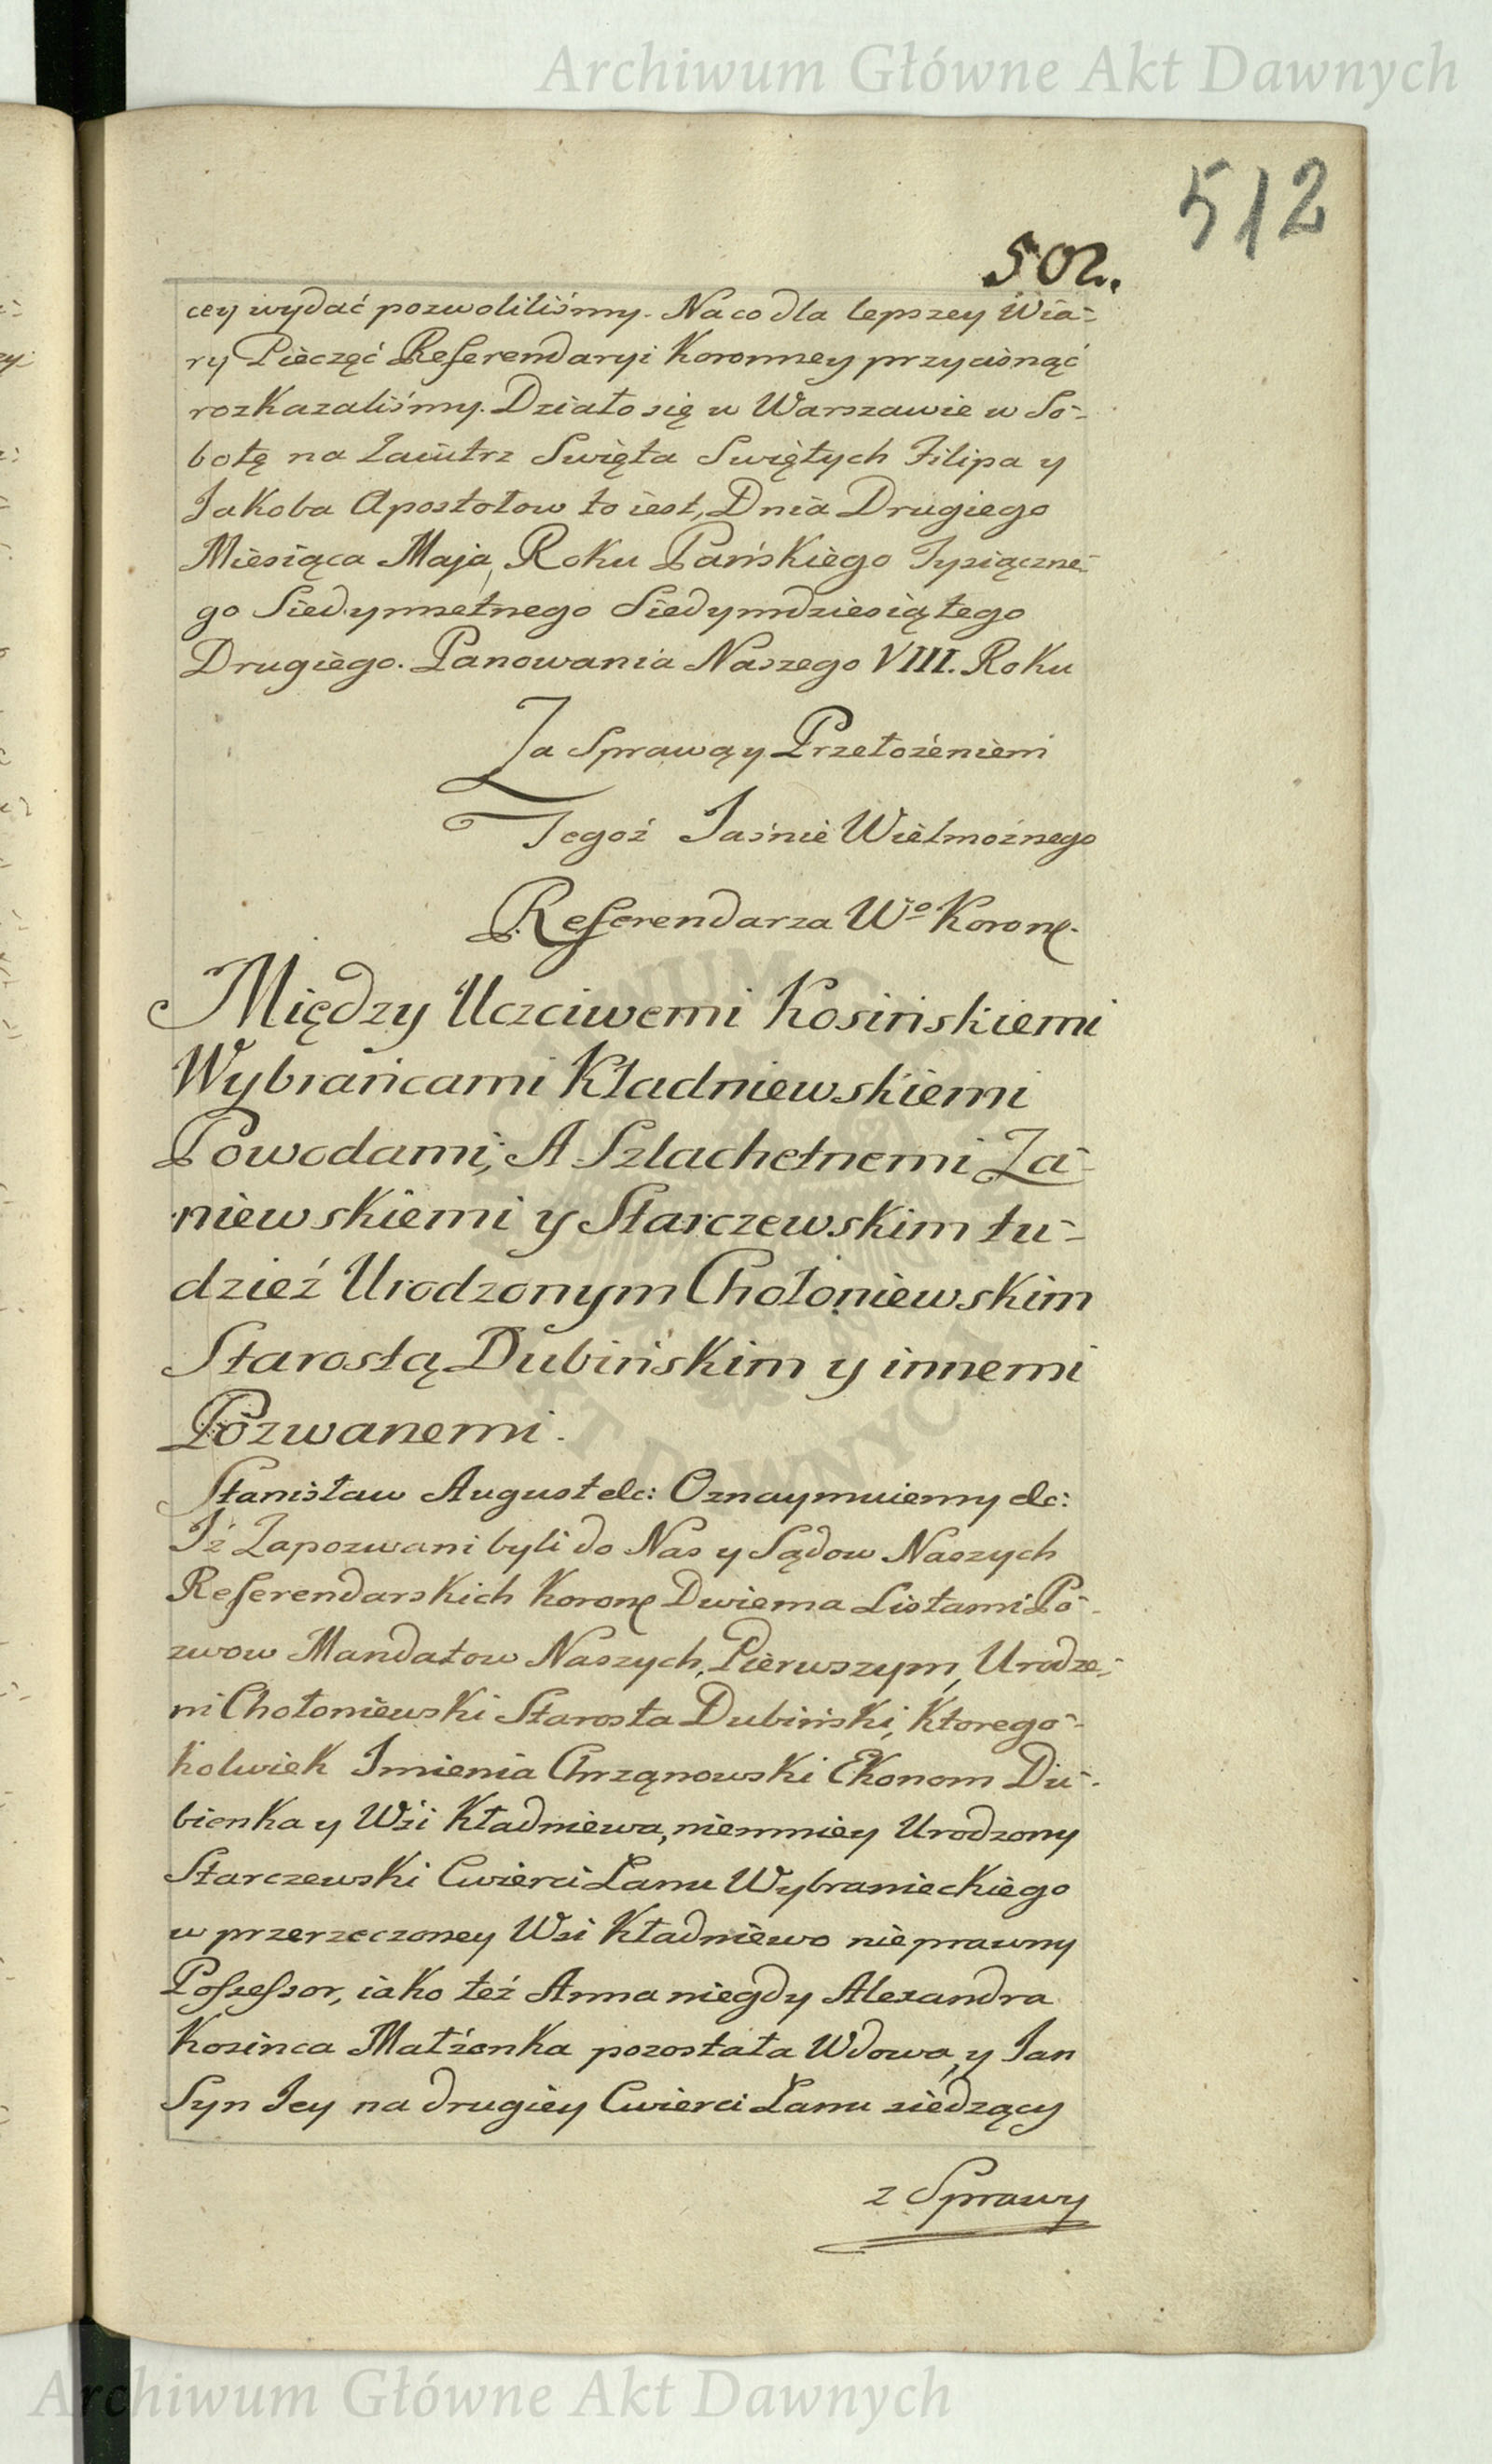 Archiwum Główne Akt Dawnych
512
502.
cey wydać pozwoliliśmy. Na co dla lepszey Wia-
ry Pieczęć Referendaryi Koronney przycisnąć
rozkazaliśmy. Działo się w Warszawie w So-
botę na Zaiutrz Swięta Swiętych Filipa y
Jakoba Apostołow to iest, Dnia Drugiego
Miesiąca Maja, Roku Pańskiego Tysiączne-
go Siedymsetnego Siedymdziesiątego
Drugiego. Panowania Naszego VIII. Roku
Za Sprawą y Przełożeniem
Tegoż Jaśnie Wielmożnego
Referendarza Wo Koron.
Między Uczciwemi Kosińskiemi
Wybrańcami Kładniewskiemi
Powodami; A Szlachetnemi Za-
niewskiemi y Starczewskim tu-
dzież Urodzonym Chołoniewskim
Starostą Dubińskim y innemi
Pozwanemi.
Stanisław August etc: Oznaymuiemy etc:
Iż Zapozwani byli do Nas y Sądow Naszych
Referendarskich Koron Dwiema Listami Po-
zwow Mandatow Naszych, Pierwszym, Urodze-
ni Chołoniewski Starosta Dubiński, Ktorego-
kolwiek Imienia Chrząnowski Ekonom Du-
bienka y Wsi Kładniewa, niemniey Urodzony
Starczewski Cwierci Łanu Wybranieckiego
w przerzeczoney Wsi Kładniewo nieprawny
Possessor, iako też Anna niegdy Alexandra
Kosinca Małżonka pozostała Wdowa, y Jan
Syn Jey na drugiey Cwierci Łanu siedzący
z Sprawy
Archiwum Główne Akt Dawnych